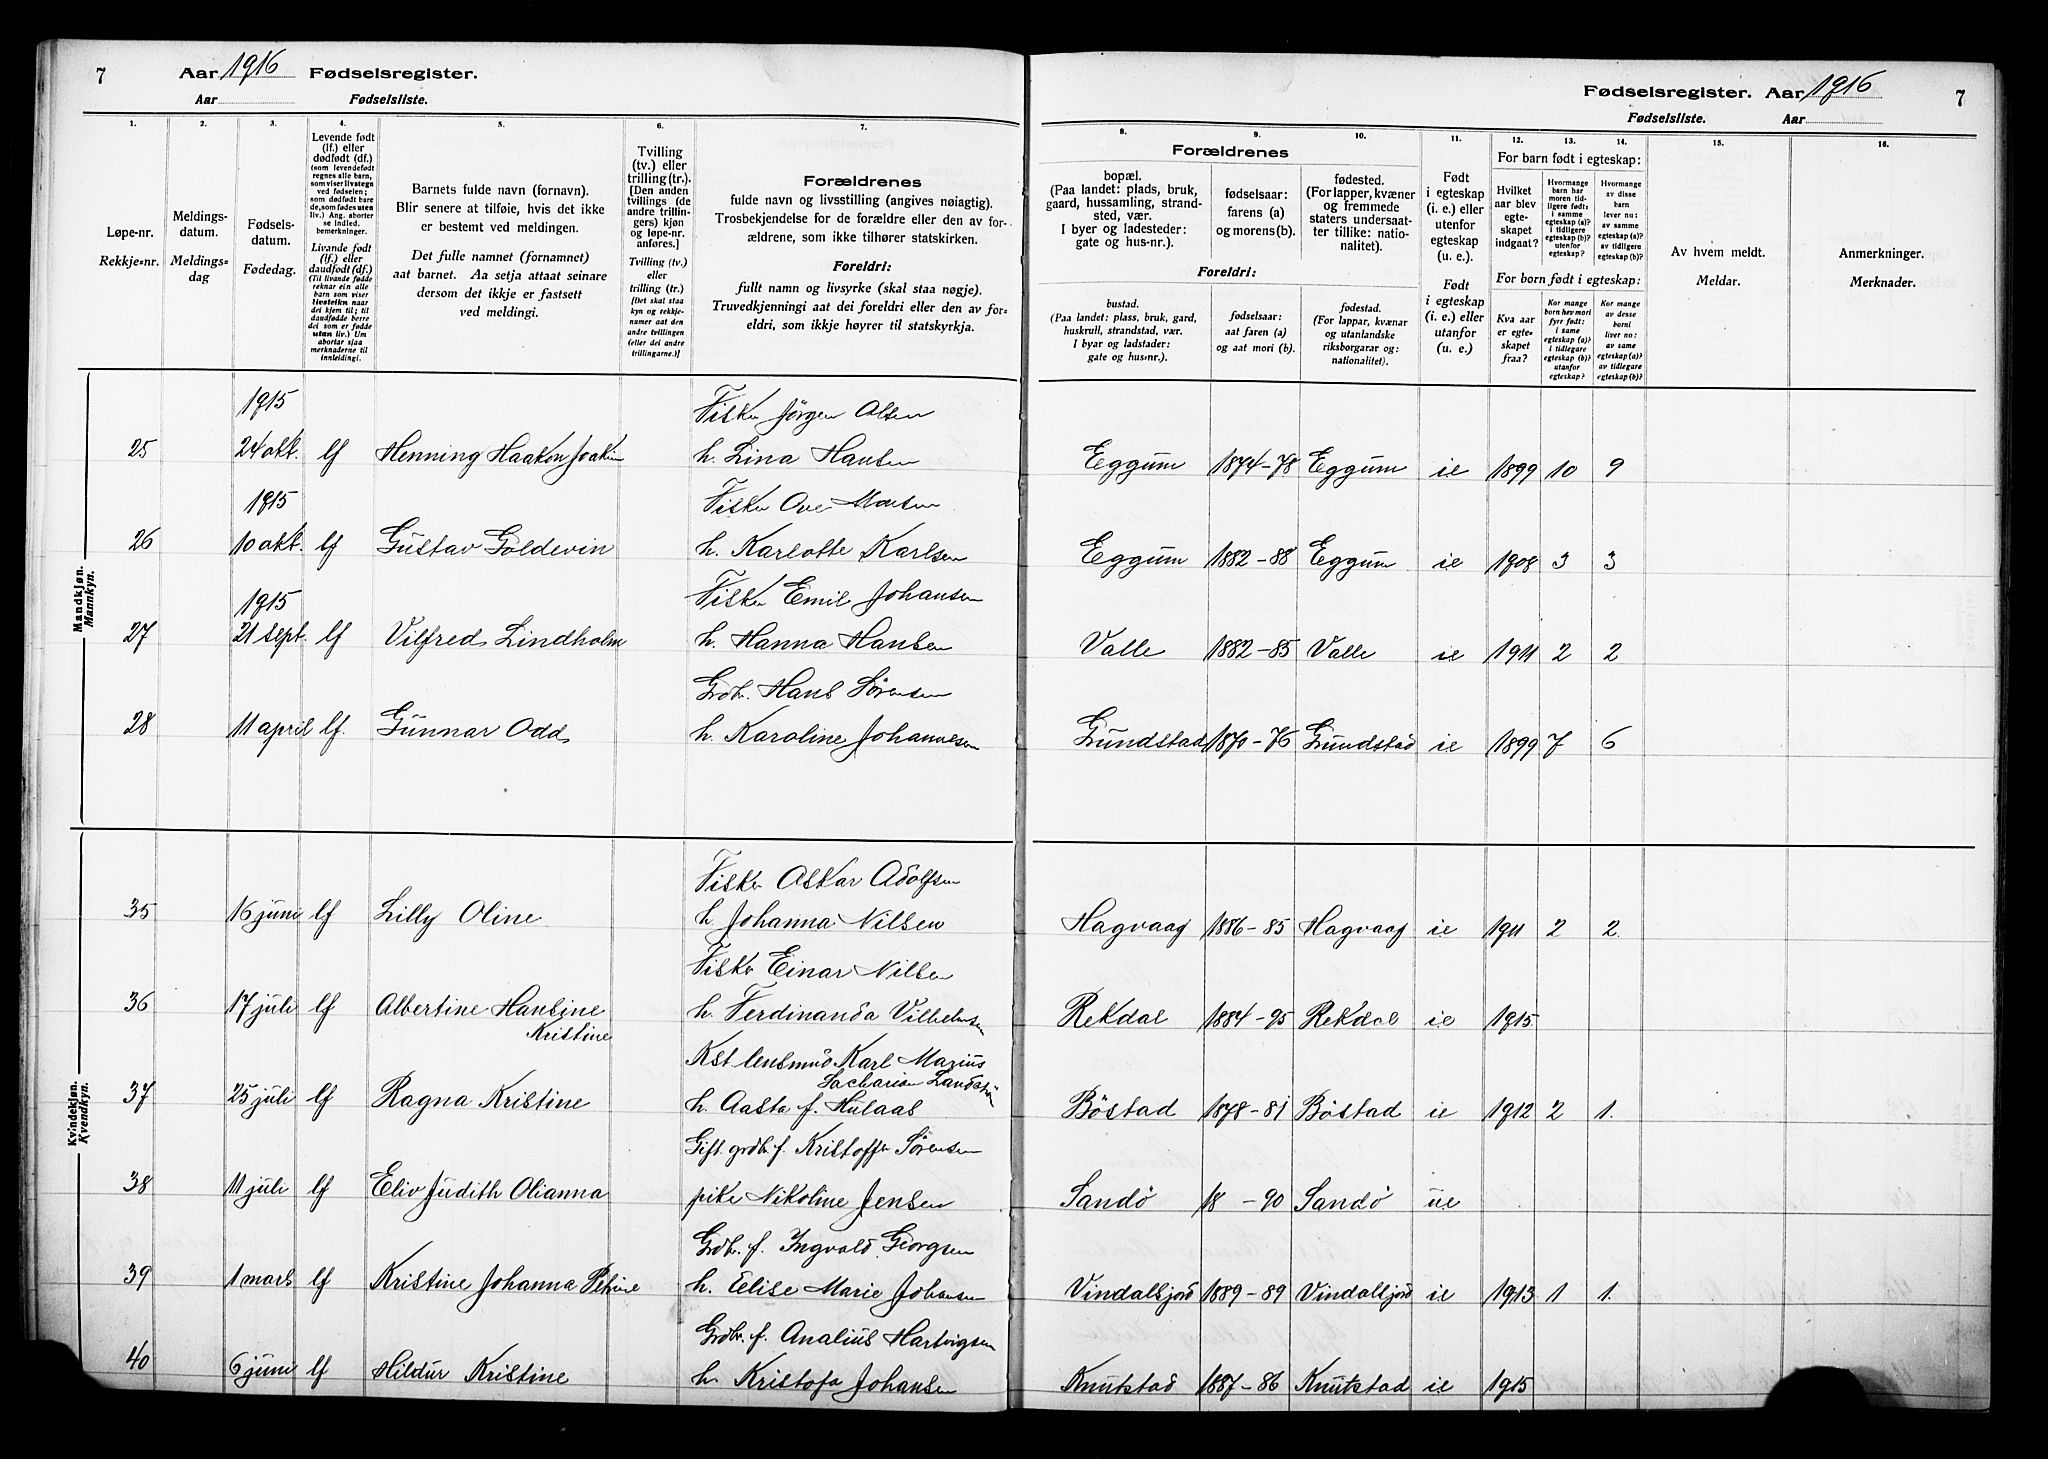 7 Aar 1916 Fødselsregister.
Aar Fødselsliste.
Fødselsregister. Aar 1916 7
Fødselsliste. Aar
1. 2. 3. 4. 5. 6. 7.
Løpe-nr.
Rekkje-nr.
Meldings-
datum.
Meldings-
dag
Fødsels-
datum.
Fødedag.
Levende født
(lf.) eller
dødfødt (df.)
(som levendefødt
regnes alle barn,
som viser livstegn
ved fødselen;
som dødfødt barn
de, som fødes uten
liv.) Ang. aborter
se indled.
bemerkninger.
Livande født
(lf.) eller
daudfødt (df.)
(Til livande fødde
reknar ein alle
barn som viser
livsteikn naar
dei kjem til; til
daudfødde berre
dei som er fødde
utan liv.) Um
abortar sjaa
merknaderne til
innleiding!
Barnets fulde navn (fornavn).
Blir senere at tilføie, hvis det ikke
er bestemt ved meldingen.
Det fulle namnet (fornamnet)
aat barnet. Aa setja attaat seinare
dersom det ikkje er fastsett
ved meldingi.
Tvilling
(tv.) eller
trilling (tr.).
[Den anden
tvillings (de
andre trillin-
gers) kjøn
og løpe-nr.
anføres.]
Tvilling (tv.)
eller
trilling (tr.)
[Det skal staa
kyn og rekkje-
numer aat den
andre tvillingen
(eller dei andre
trillingarne.)]
Forældrenes
fulde navn og livsstilling (angives nøiagtig).
Trosbekjendelse for de forældre eller den av for-
ældrene, som ikke tilhører statskirken.
Foreldri:
fullt namn og livsyrke (skal staa nøgje).
Truvedkjenningi aat dei foreldri eller den av for-
eldri, som ikkje høyrer til statskyrkja.
8. 9. 10. 11. 12. 13. 14. 15. 16.
Forældrenes
bopæl.
(Paa landet: plads, bruk,
gaard, hussamling, strand-
sted, vær.
I byer og ladesteder:
gate og hus-nr.).
fødselsaar:
farens (a)
og morens (b).
fødested.
(For lapper, kvæner
og fremmede
staters undersaat-
ter tillike: natio-
nalitet).
Foreldri:
bustad.
(Paa landet: plass, bruk, gard,
huskrull, strandstad, vær.
I byar og ladstader:
gate og hus-nr.).
fødselsaar:
aat faren (a)
og aat mori (b).
fødestad.
(For lappar, kvænar
og utanlandske
riksborgarar og:
nationalitet).
Født
i egteskap
(i. e.) eller
utenfor
egteskap
(u. e.).
Født
i egteskap
(i. e.) eller
utanfor
(u. e.).
For barn født i egteskap:
Hvilket
aar blev
egte-
skapet
indgaat?
Hvormange
barn har
moren tid-
ligere født:
i samme
egteskap (a)?
i tidligere
egteskap (b)?
utenfor
egteskap?
Hvormange
av disse
barn
lever nu:
av samme
egteskap (a)?
av tidligere
egteskap (b)?
For born født i egteskap:
Kva aar
er egte-
skapet
fraa?
Kor mange
born hev mori
fyrr født:
i same
egteskap (a)?
i tidlegare
egteskap (b)?
utanfor
egteskap?
Kor mange
av desse
borni
liver no:
av same
egteskap (a)?
av tidlegare
egteskap (b)?
Av hvem meldt.
Meldar.
Anmerkninger.
Merknader.
Mandkjøn.
Mannkyn.
1915 Fisker Jörgen Olsen
25 24 okt. lf Henning Haakon Joakim h. Lina Hansen Eggum 1874-78 Eggum ie 1899 10 9
1915 Fisker Ove Monsen
26 10 okt. lf Gustav Goldevin h. Karlotte Karlsen Eggum 1882-88 Eggum ie 1908 3 3
1915 Fisker Emil Johansen
27 21 sept. lf Vilfred Lindholm h. Hanna Hansen Valle 1882-85 Valle ie 1911 2 2
Grdbr. Hans Sørensen
28 11 april lf. Gunnar Odd h. Karoline Johannesen Grundstad 1870-76 Grundstad ie 1899 7 6
Kvindekjøn.
Kvendkyn.
Fisker Oskar Adolfsen
35 16 juni lf Lilly Oline h Johanna Nilsen Hagvaag 1886-85 Hagvaag ie 1911 2 2.
Fisker Einar Nilsen
36 17 juli lf Albertine Hansine h. Ferdinanda Vilhelmsen Rekdal 1884-95 Rekdal ie 1915
Kristine
Kst. lensmnd Karl Marius
Sacharias Landstøm
37 25 juli lf Ragna Kristine h. Aasta f. Hulaas Böstad 1878-81 Böstad ie 1912 2 1.
Gift. grdbr. f. Kristoffer Sörensen
38 11 juli lf Eliv Judith Olianna pike Nikoline Jensen Sandö 18 -90 Sandö ue
Grdbr. f. Ingvald Georgsen
39 1 mars lf Kristine Johanna Petrine h. Eelise Marie Johansen Vindalsjord 1889-89 Vindalsjord ie 1913 1 1.
Grdbr. f. Analius Hartvigsen
40 6 juni lf Hildur Kristine h. Kristofa Johansen Knutstad 1887-86 Knutstad ie 1915